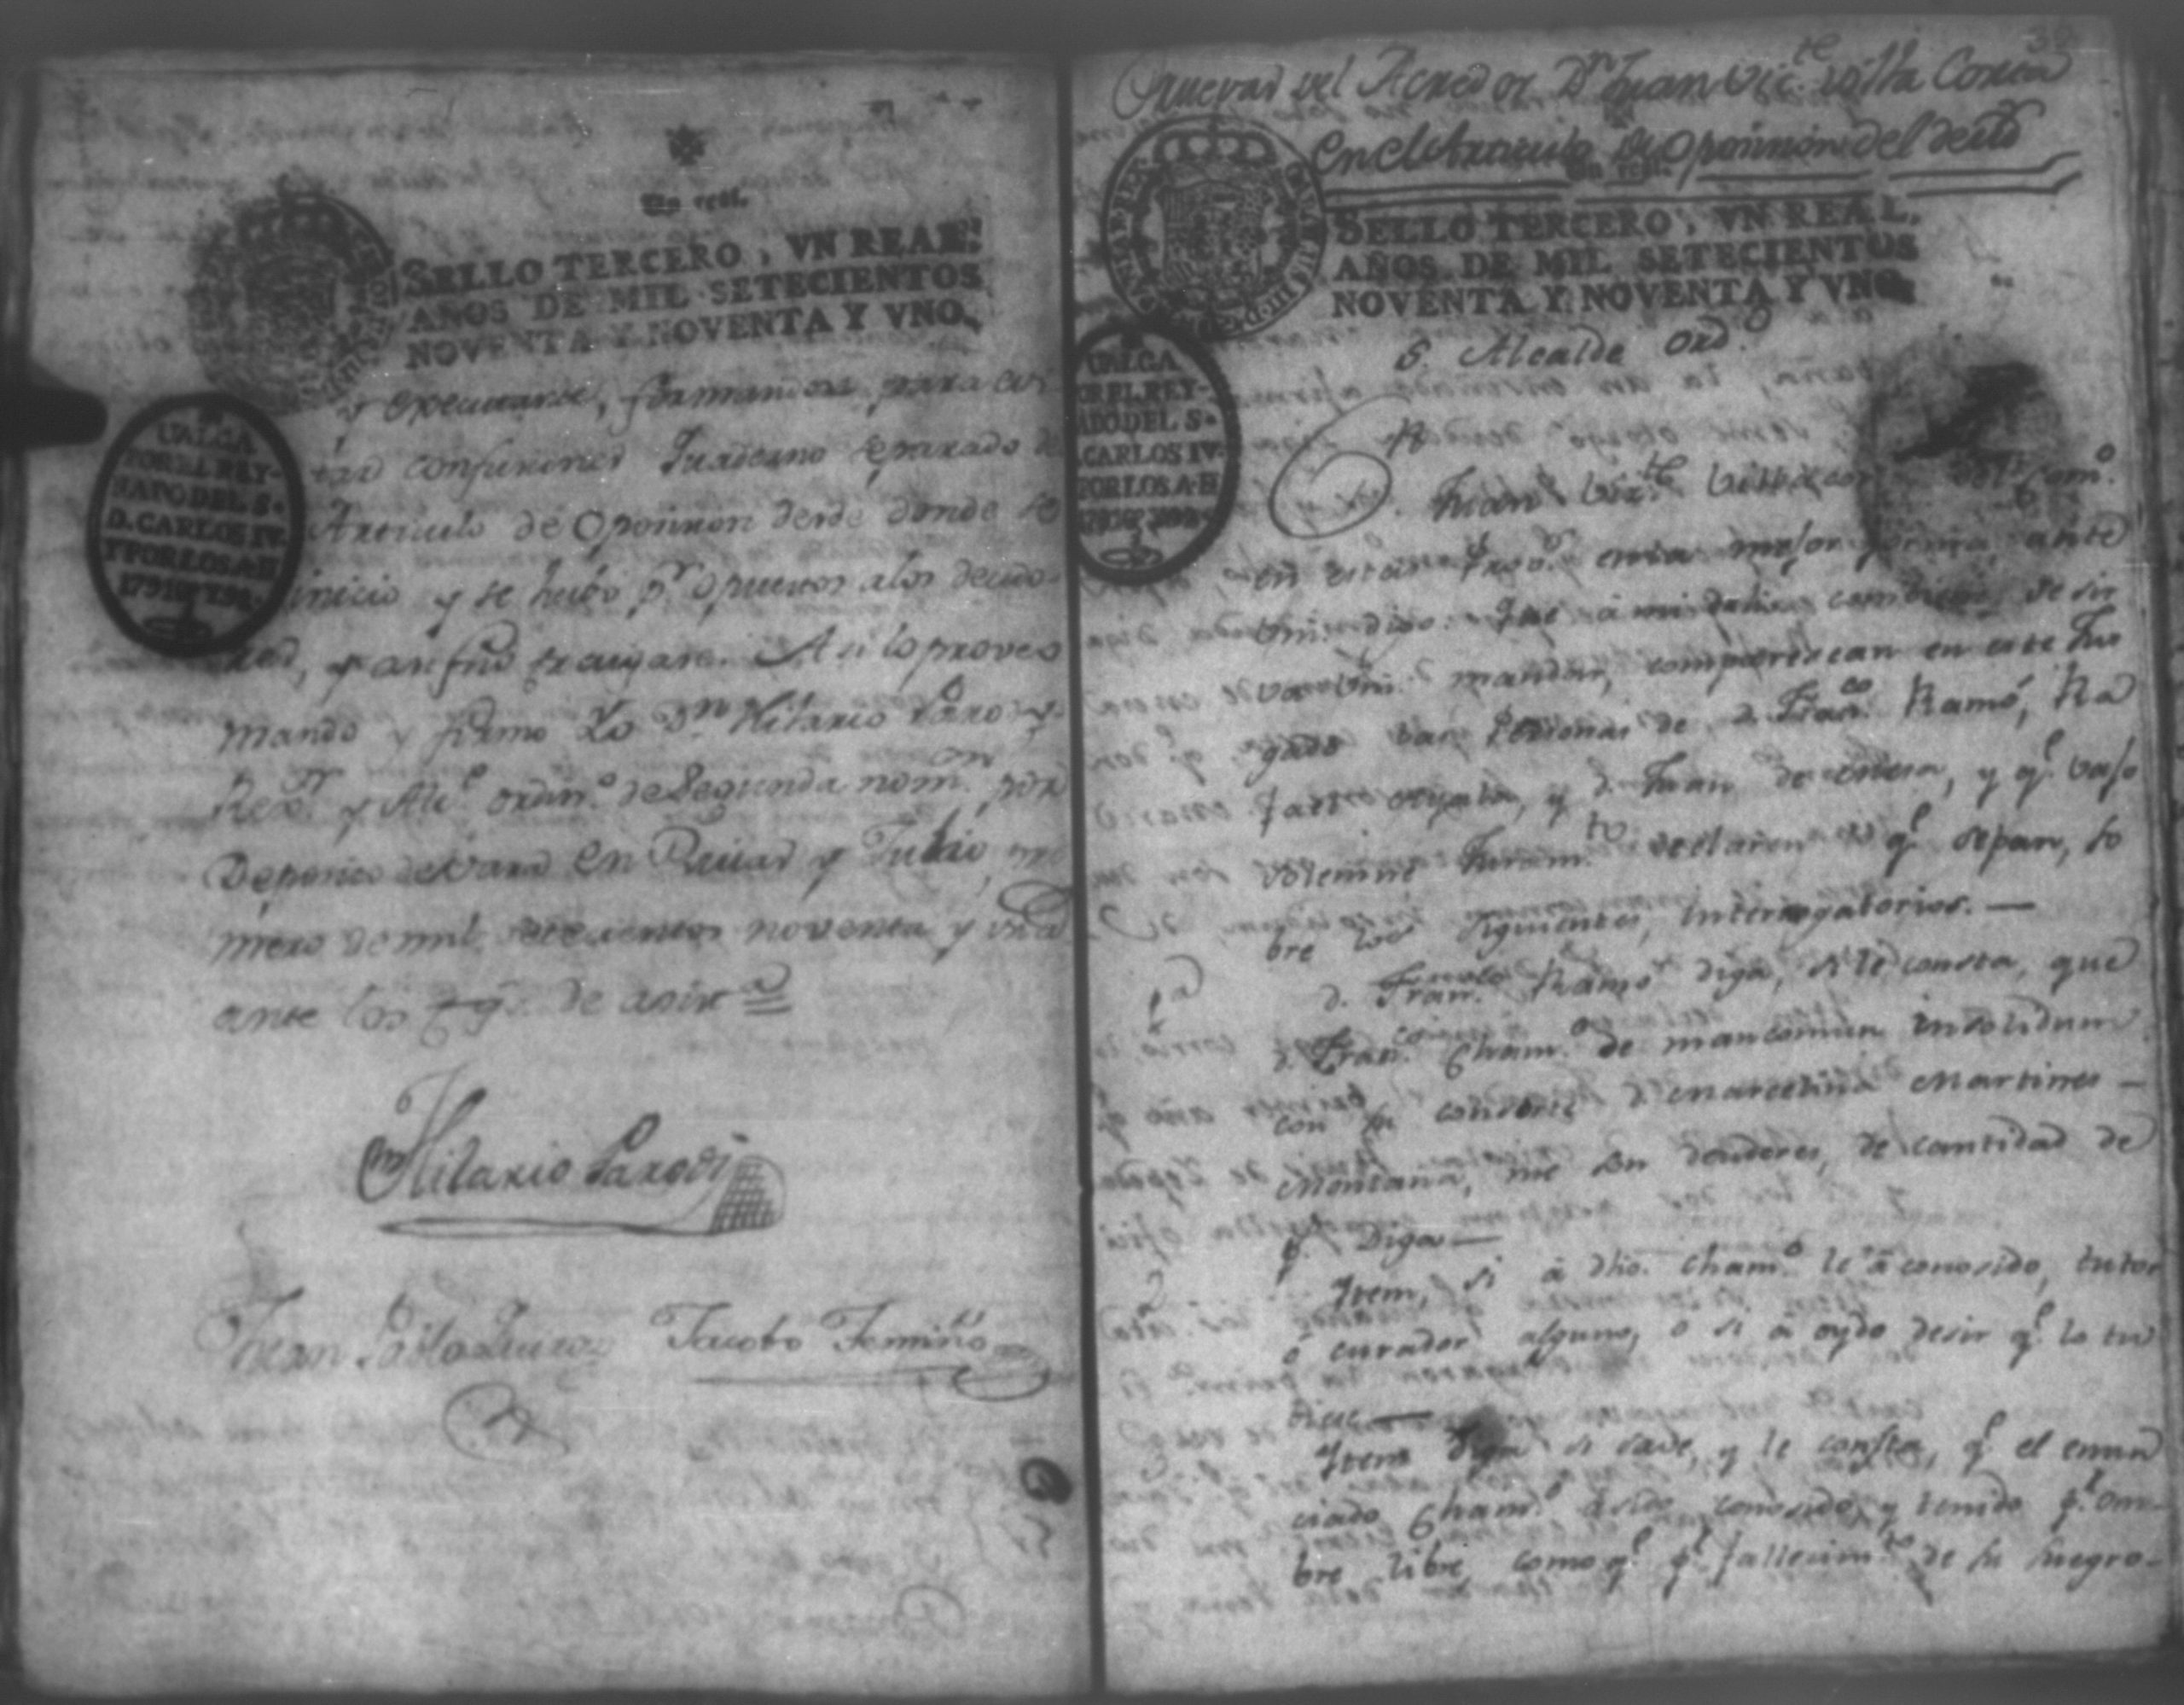 Un real.
SELLO TERCERO, VN REAL.
AÑOS DE MIL SETECIENTOS
NOVENTA Y NOVENTA Y VNO.
VALGA
POR EL REY-
NADO DEL S.
D. CARLOS IV.
Y POR LOS A.
1792
y executarse, formandose para
confusiones Quaderno separado de
Articulo de Oposicion desde donde se
inicio y se hubo pr. opuestos a los
y an fho traigase. Asi lo proveo
mando y firmo Yo Dn. Hilario Parody
Rexr. y Alce. ordino. de Segunda nomon. por
Deposito de Vara en Rivas y Julio, pri
mero de mil setecientos noventa y uno
ante los tgs. de asisa.
Hilario Parody
Juan Pablo Jacobo Fermiño
Pruevas del Acredor Dn. Juan Victe. Villa Corta
en el Articulo de Oposicion del
Un real.
SELLO TERCERO, VN REAL.
AÑOS DE MIL SETECIENTOS
NOVENTA Y NOVENTA Y VNO.
VALGA
POR EL REY-
NADO DEL S.
D. CARLOS IV.
Y POR LOS A.
S. Alcalde Ordo.
D. Juan Vizte. Villacorta
en esta Prova. en la mejor forma, ante
Vm. digo: Que a mi dro. combiene se sir
va Vm. mandar, comparescan en este Jus
gado las Personas de D. Franco. Ramo, Ra
fael Oyala, y D. Juan de , y qe. vajo
solemne Juramto. declaren lo qe. sepan, so
bre los siguientes, interrogatorios. —
1a D. Franco. Ramo diga, si le consta, que
D. Franco. Chamo. de mancomun insolidum
con su consorte Da. Marcelina Martines —
Montana, me son deudores, de cantidad de
p. Diga —
2 Ytem, si a dho. Chamo. le a conosido, tutor
o curador alguno, o si a oydo desir qe. lo tu
biese —
3 Ytem diga si save, y le consta, qe. el enun
ciado Chamo. a sido conosido, y tenido pr. om-
bre libre, como qe. pr. fallecimto. de su suegro-